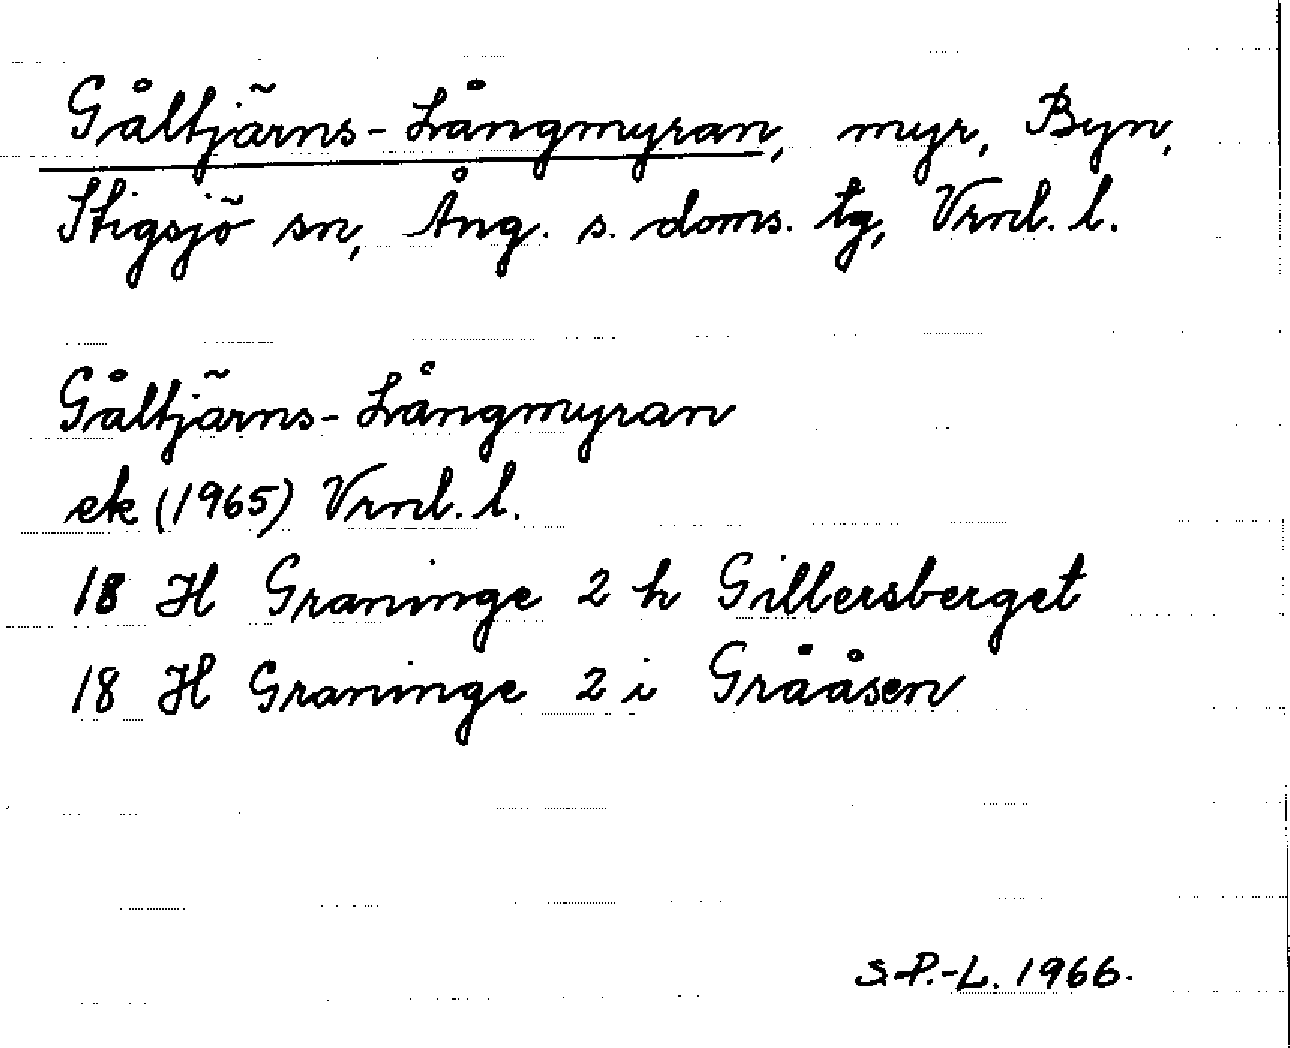 Gåltjärns-Långmyran, myr, Byn,
Stigsjö sn, Ång. s. doms. tg, Vrnl. l.
Gåltjärns-Långmyran
ek (1965) Vrnl. l.
18 H Graninge 2 h Gillersberget
18 H Graninge 2 i Grååsen
S-P.-L. 1966.